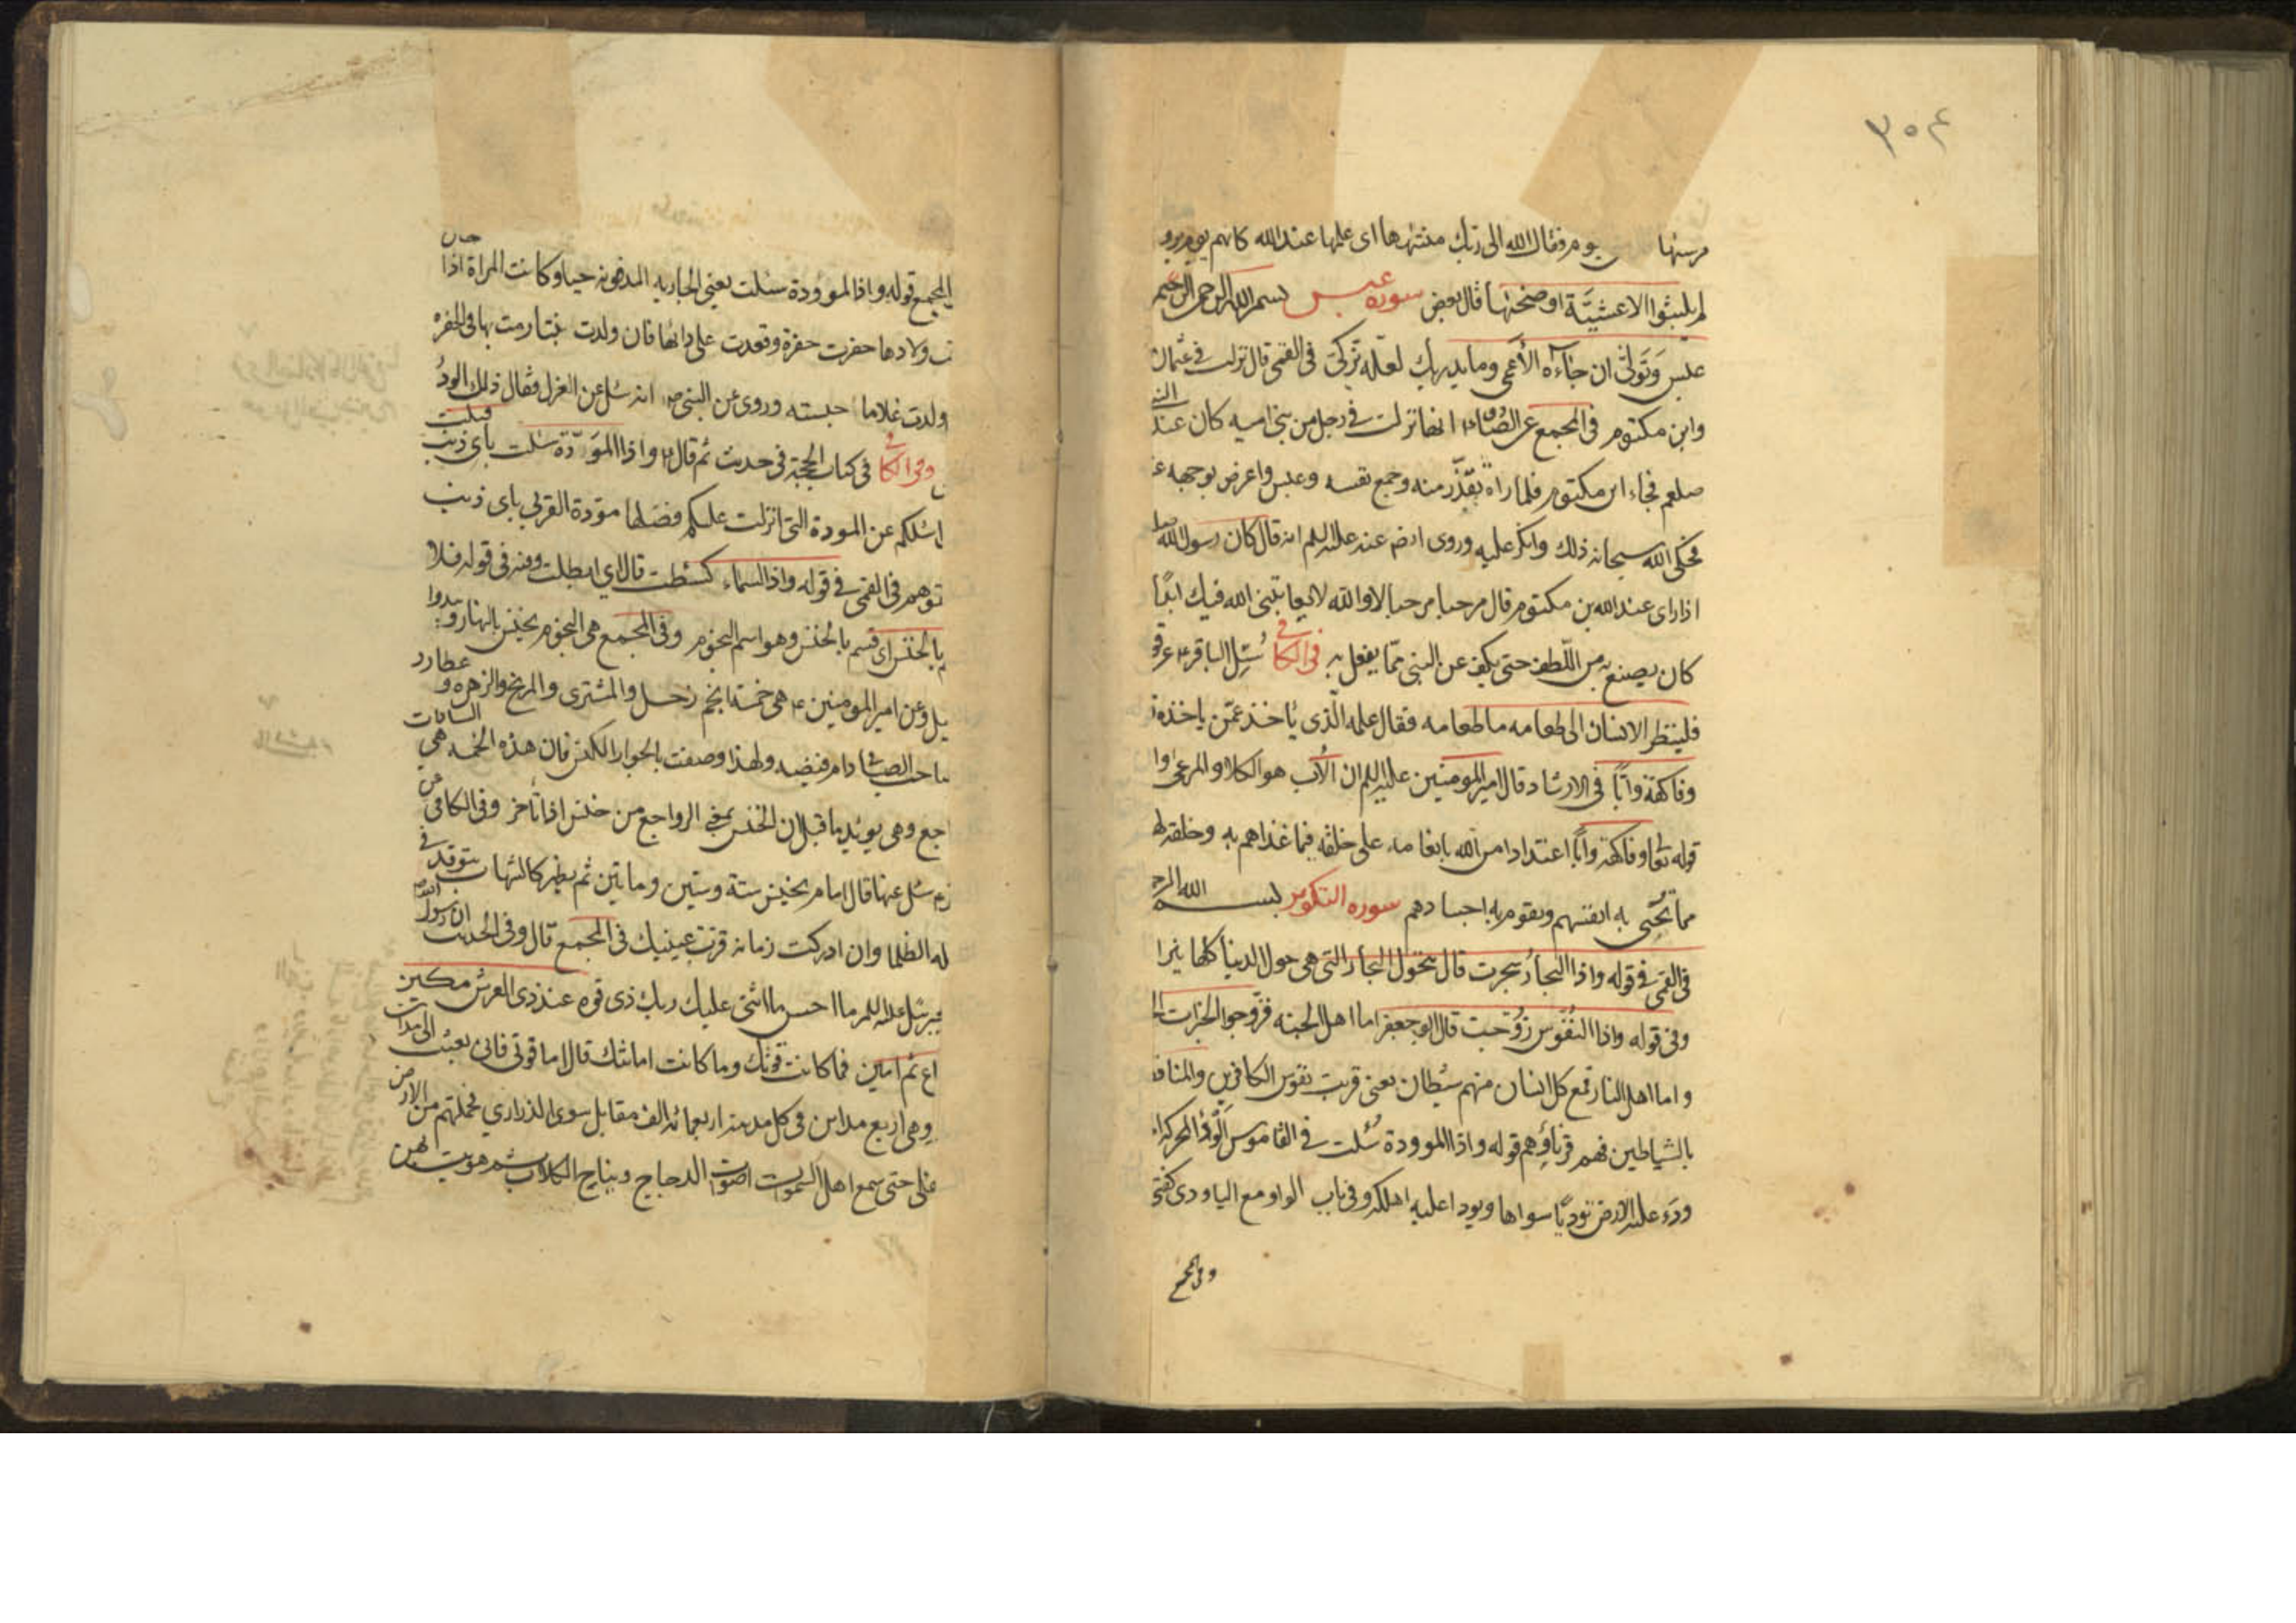 ۳۰۴
مرسيها يوم فقال الله الى ربك منتهيها اى علمها عند الله كانهم يوم يرو
لم يلبثوا الا عشيّة او ضحيٰها قال بعض سوره عبس بسم الله الرحمن الرحيم
عبس وَتَولّىٰ ان جاۤءه الأعمى وما يدريك لعلّه يزكّى فى القمى قال نزلت فى عثمان
وابن مكتوم فى المجمع عن الصادق ع انها نزلت فى رجل من بنى اميه كان عند النبى
صلعم فجاء ابن مكتوم فلما راه تقذّر منه وجمع نفسه وعبس واعرض بوجهه ع
فحكى الله سبحانه ذلك وانكر عليه وروى ايضا عنه عليه السلم انه قال كان رسول الله ص
اذا راى عبد الله بن مكتوم قال مرحبا مرحبا لا والله لا يعاتبنى الله فيك ابدًا
كان يصنع به من اللّطف حتى يكف عن النبى ممّا يفعل به فى الكافى سُئِل الباقر ع عن قو
فلينظر الانسان الى طعامه ما طعامه فقال علمه الّذى يأخذ عمّن ياخذه
وفاكهة وابّا فى الارشاد قال امير المومنين عليه السلم ان الأب هو الكلاء والمرعى وا
قوله تعا وفاكهة وابًّا اعتدادا من الله بانعامه على خلقه فيما غذاهم به وخلقه لهم
مما تحيى به انفسهم وتقوم به اجسادهم سوره التكوير بسم الله الرح
فى القمى فى قوله واذا البحارُ سجرت قال تتحول البحار التى هى حول الدنيا كلها نيرا
وفى قوله واذا النُفُوس زُوّجت قال ابو جعفر اما اهل الجنه فزوجوا الخيرات ا
واما اهل النار فمع كل انسان منهم شيطان يعنى قرنت نفوس الكافرين والمناف
بالشياطين فهم قرناؤهم قوله واذا الموودة سُئلت فى القاموس
ودَء عليه الارض توديًا سواها وتودا عليه اهلكه وفى باب الواو مع اليا ودى كفتى
وفى المجمع
المجمع قوله واذا الموؤودة سئلت يعنى الجاريه المدفونه حيا وكانت المراة اذا حان
ت ولادها حفرت حفرة وقعدت على راسها فان ولدت بنتا رمت بها فى الحفره
ولدت غلاما حبسته وروى عن النبى ص انه سُئل عن العزل فقال ذلك الودُ
وفى الكافى فى كتاب الحجة فى حديث ثم قال ع واذا المَوَدّة سئلت باى ذنب قتلت
اسئلكم عن المودة التى انزلت عليكم فضلها مودّة القربى باى ذنب
توهم فى القمى فى قوله واذا السماء كشطت قال اى ابطلت وفيه فى قوله فلا
م بالخنس اى قسم بالخنس وهو اسم النجوم وفى المجمع هى النجوم تخنس بالنهار وتبدوا
يل وعن امير المومنين ع هى خمسة انجم زحل والمشترى والمريخ والزهره و عطارد
ولهذا وصفت بالجوار الكنس فان هذه الخمسه هى السيارات
اجع وهى يويد ما قيل ان الخنس بمعنى الرواجع من خنس اذا تأخر وفى الكافى عن
سئل عنها قال امام يخنس ستة وستين وماتين ثم يظهر كالشهاب يتوقد فى
له الظلما وان ادركت زمانه قرت عينيك فى المجمع قال وفى الحديث ان رسول الله ص
جبرئيل عليه السلم ما احسن ما اثنى عليك ربك ذى قوه عند ذى العرش مكين
اع ثم امين فما كانت قوتك وما كانت امانتك قال اما قوتى فانى بعثت الى مدائن
وهى اربع مداين فى كل مدينه اربعمائه الف مقاتل سوى الذرارى فحملتهم من الارض
على حتى سمع اهل السموات اصوات الدجاج ونباح الكلاب ثم هويت بهن